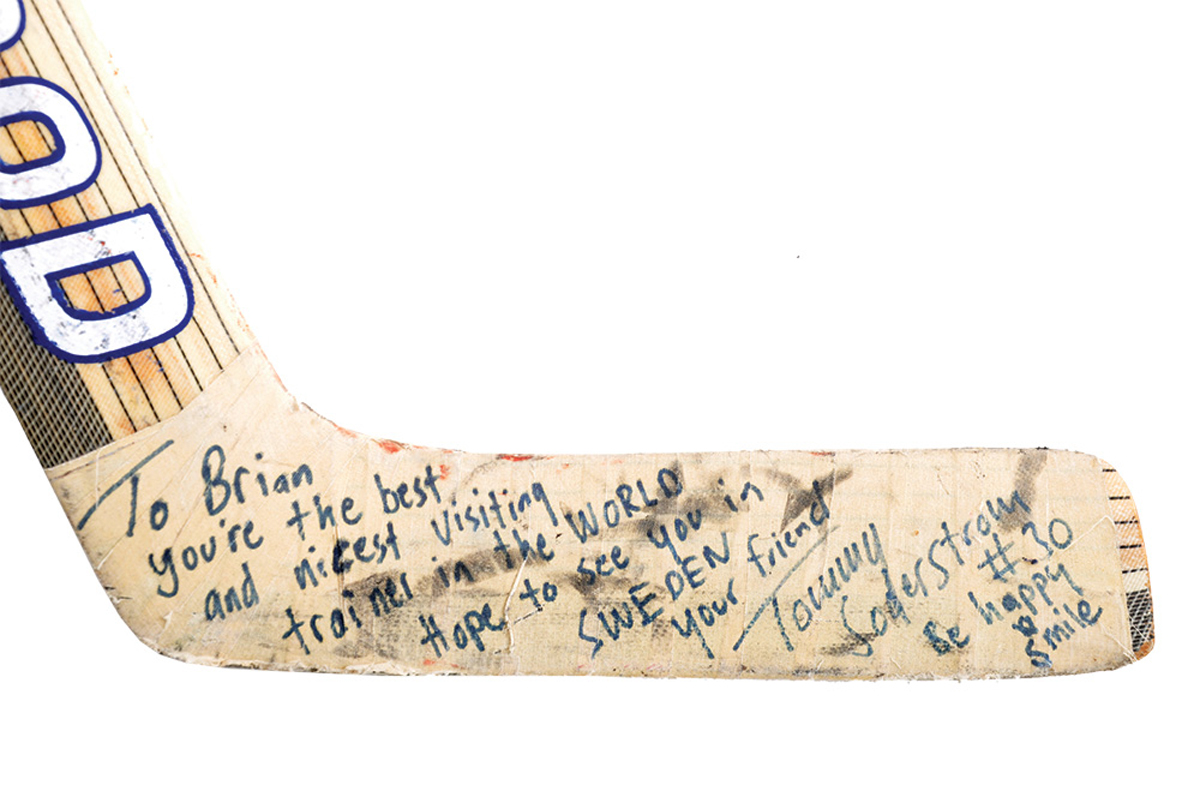 OD
To Brian
you're the best
and nicest visiting
trainer in the WORLD
Hope to see you in
SWEDEN
your friend
Tommy
Soderstrom
#30
Be happy
&
smile